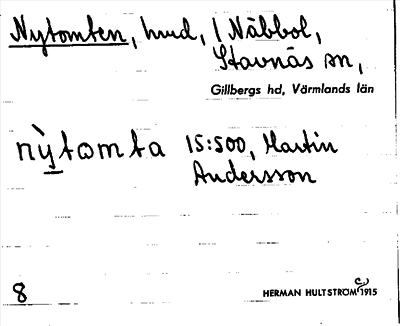 Nytomten, hmd, / Näbbol,
Stavnäs sn,
Gillbergs hd, Värmlands län
nỳtωmta 15:500, Martin
Andersson
8
HERMAN HULTSTRÖM 1915